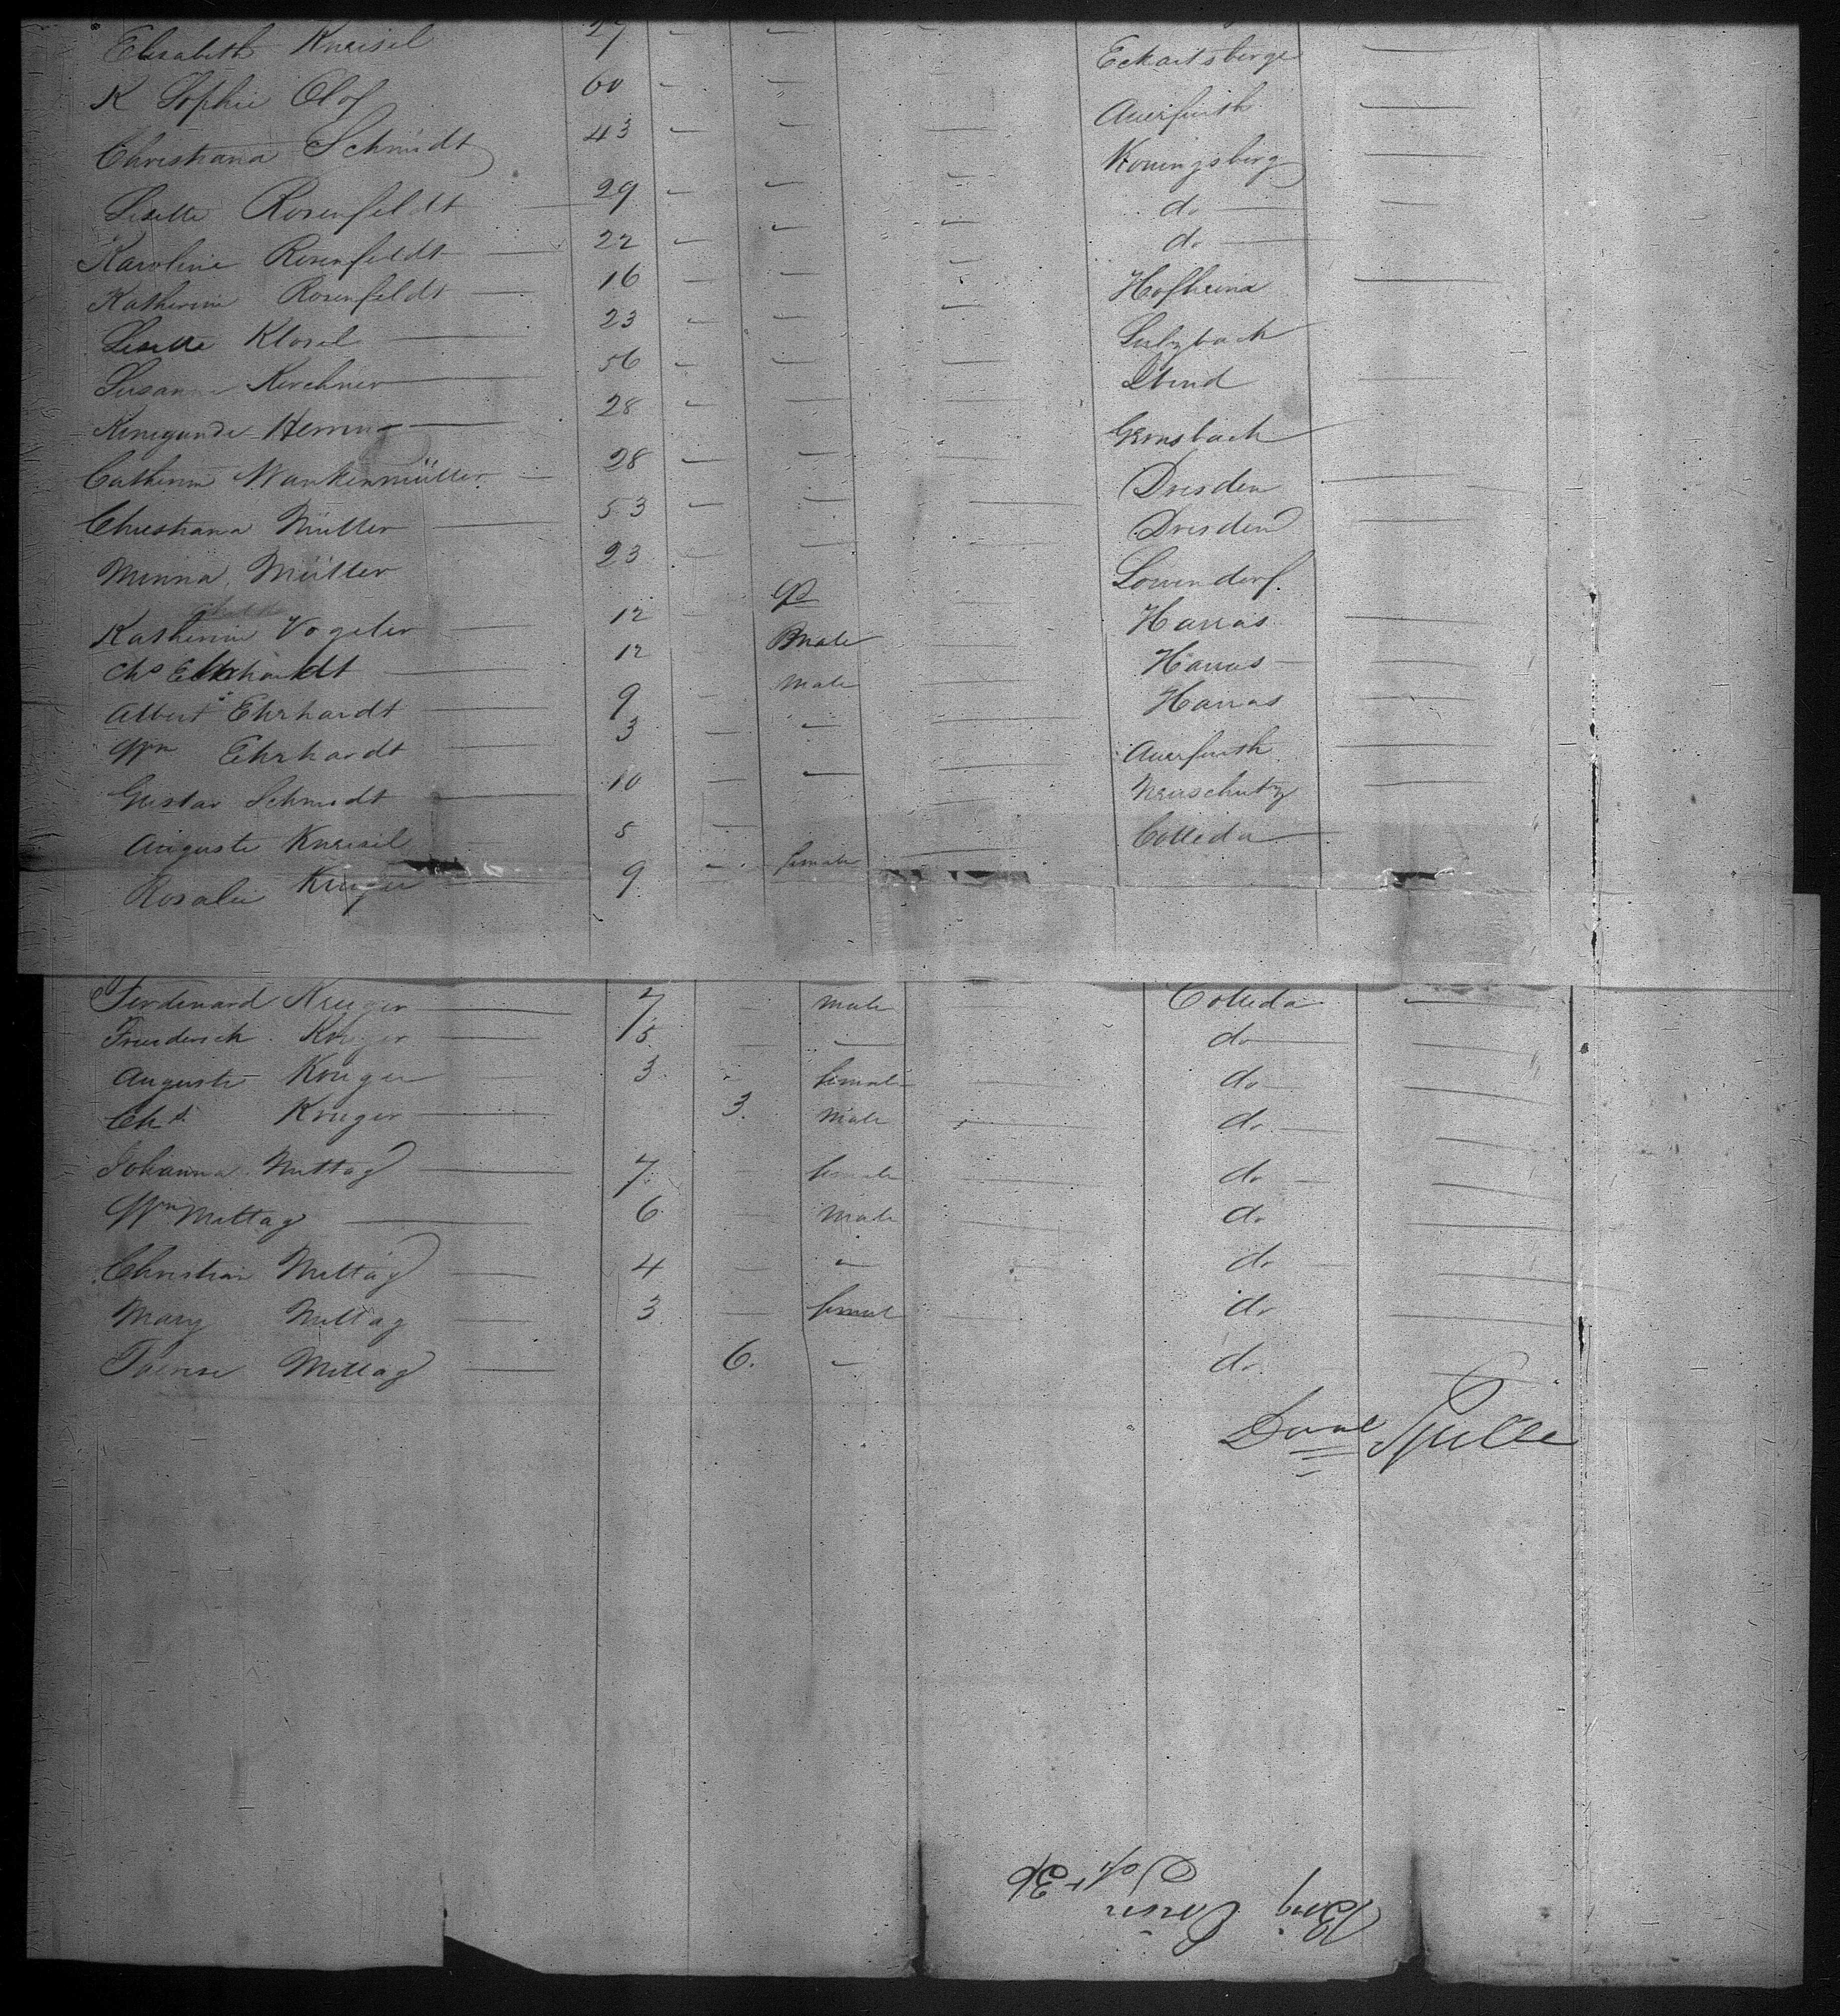 Elisabeth Kneisel 27 Eckartsberge
K Sophie Olof 60 Auerfurth
Christiana Schmidt 43 Koningsberg
Lisette Rosenfeldt 29 do
Karoline Rosenfeldt 22 do
Katherine Rosenfeldt 16 Hofheina
Lisette Klosel 23 Sulzbach
Susanna Kirchner 56
Kunegunde 28 Gernsbach
Catherine Wankenmüller 28 Dresden
Christiana Müller 53 Dresden
Minna Müller 23 Lowendorf
Katherine Vogeler 12 Harras
Chs Ehrhardt 12 male Harras
Albert Ehrhardt 9 male Harras
Wm Ehrhardt 3 Auerfurth
Gustav Schmidt 10 Neuschutz
Auguste Kneisel 5 Colleda
Rosalie Kruger 9 female
Ferdinand Kruger 7 male Colleda
Friederich Kruger 5 do
Auguste Kruger 3 female do
Chs Kruger 3. male do
Johanna Mittag 7 female do
Wm Mittag 6 male do
Christian Mittag 4 do
Mary Mittag 3 female do
Therese Mittag 6. do
Brig
Sept 36